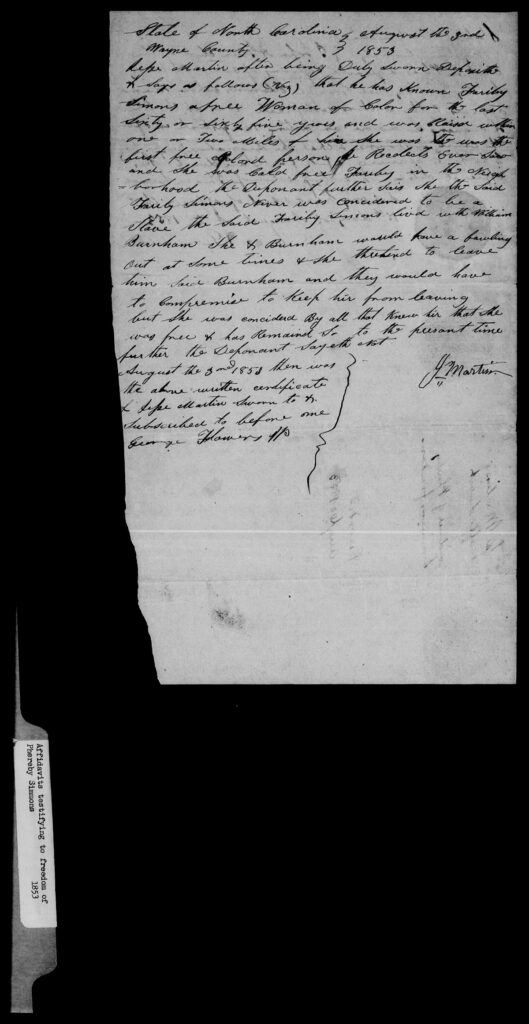 State of North Carolina } August the 3rd
Wayne County } 1853
Jesse Martin after being Duly Sworn Deposith
& Says as follows (Viz) that he has Known Fariby
Simons a free Woman of Color for the last
Sixty or Sixty five years and was Raisd within
one or Two Miles of hir She was the
first free Colord person he Recolects Ever
and She was Cald free Fariby in the Neigh
borhood the Deponant further Sais the Said
Fariby Simons Never was Concidered to be a
Slave the Said Fariby Simons lived with William
Burnham She & Burnham would have a
out at Some times & She thretend to leave
him Said Burnham and they would have
to Compremise to Keep hir from leaving
but She was concided By all that Knew hir that She
was free & has Remaind So to the presant time
further the Deponant Sayeth not
J Martin
August the 3rd 1853 then was
the above written certificate
& Jesse Martin Sworn to &
Subscribed to before one
George Flowers
Affidavits testifying to freedom of
Phereby Simmons
1853